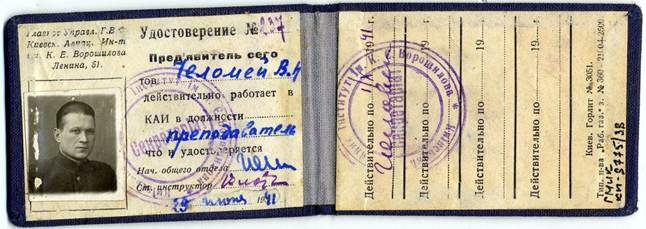 Главное Управл. Г.В.Ф.
Киевск. Авиац. Ин-т
им. К. Е. Ворошилова
Ленина, 51.
Удостоверение № 237
Предъявитель сего
тов. Челомей В.Н.
действительно работает в
КАИ в должности
преподаватель
что и удостоверяется
Нач. общего отдела
Ст. инструктор
29 июня 1941
Действительно по 1/IX 1941 г.
Действительно по 19 г.
Действительно по 19 г.
Действительно по 19 г.
Киев, Горлит № 3051.
Тип. из-ва „Раб. газ." з. № 360
ГМИК
КП-8775/38